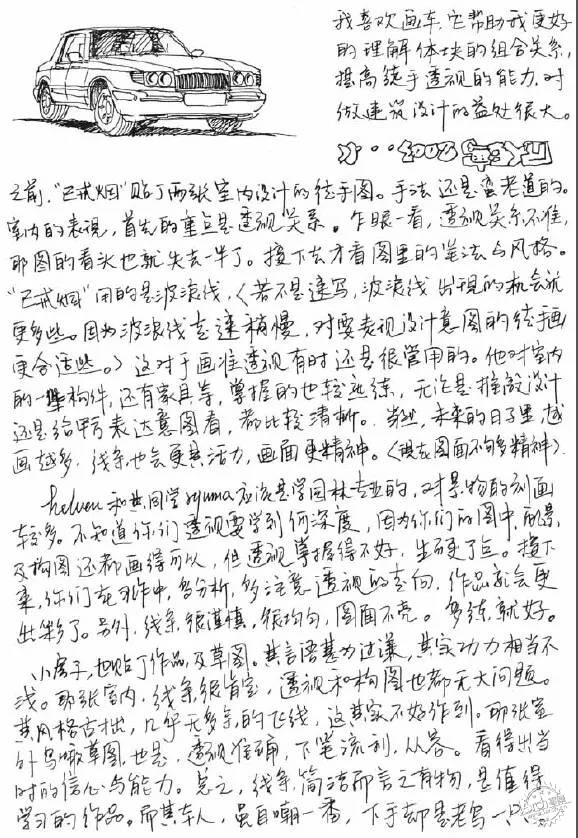 我喜欢画车，它帮助我更好
的理解体块的组合关系，
提高徒手透视的能力，对
做建筑设计的益处很大。
之前，“已戒烟”贴了两张室内设计的徒手图。手法还是蛮老道的。
室内的表现，首先的重点是透视关系。乍眼一看，透视关系不准，
那图的看头也就失去一半了。接下去才看图里的笔法与风格。
“已戒烟”用的是波浪线，〈若不是速写，波浪线出现的机会就
更多些。因为波浪线走速稍慢，对要表现设计意图的徒手画
更合适些。〉这对于画准透视有时还是很管用的。他对室内
的一些构件，还有家具等，掌握的也较熟练，无论是推敲设计
还是给甲方表达意图看，都比较清晰。当然，未来的日子里，越
画越多，线条也会更具活力，画面更精神。〈现在图面不够精神〉.
helven 和其同学 ryuma 应该是学园林专业的，对景物的刻画
较多。不知道你们透视要学到何深度，因为你们的图中，配景，
及构图还都画得可以，但透视掌握得不好，生硬了点。接下
来，你们在习作中，多分析，多注意透视的走向，作品就会更
出彩了。另外，线条很谨慎，很均匀，图面不亮。多练就好。
小房子，也贴了作品及草图。其言语甚为过谦，其实功力相当不
浅。那张室内，线条很肯定，透视和构图也都无大问题。
其风格古拙，几乎无多余的飞线，这其实不好作到。那张室
外鸟瞰草图，也是，透视准确，下笔流利，从容。看得出当
时的信心与能力。总之，线条，简洁而言之有物，是值得
学习的作品。而其本人，虽自嘲一番，下手却是老鸟一只